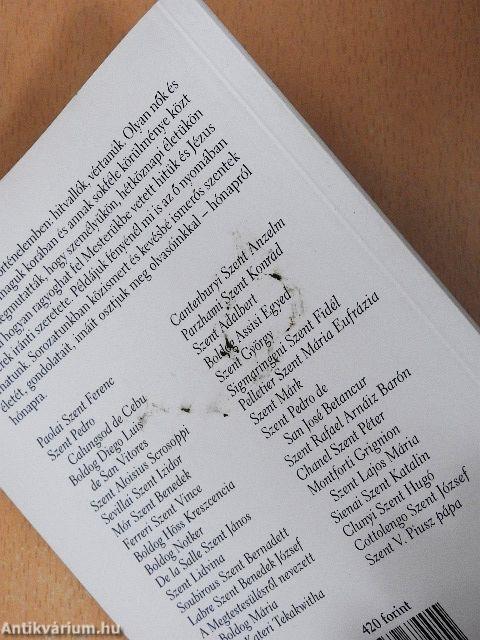 örténelemben: hitvallók, vértanúk. Olyan nők és
maguk korában és annak sokféle körülménye közt
egmutatták, hogy személyükön, hétköznapi életükön
hogyan ragyoghat fel Mesterükbe vetett hitük és Jézus
rek iránti szeretete. Példájuk fényénél mi is az ő nyomában
hatunk. Sorozatunkban közismert és kevésbé ismerős szentek
életét, gondolatait, imáit osztjuk meg olvasóinkkal – hónapról
hónapra.
Paolai Szent Ferenc
Szent Pedro
Calungsod de Cebu
Boldog Diego Luis
de San Vitores
Szent Aloisius Scrosoppi
Sevillai Szent Izidor
Mór Szent Benedek
Ferreri Szent Vince
Boldog Höss Kreszcencia
Boldog Notker
De la Salle Szent János
Szent Lidvina
Soubirous Szent Bernadett
Labre Szent Benedek József
A Megtestesülésről nevezett
Boldog Mária
Kateri Tekakwitha
Canterburyi Szent Anzelm
Parzhami Szent Konrád
Szent Adalbert
Boldog Assisi Egyed
Szent György
Sigmaringeni Szent Fidél
Pelletier Szent Mária Eufrázia
Szent Márk
Szent Pedro de
San José Betancur
Szent Rafael Arnáiz Barón
Chanel Szent Péter
Montforti Grignion
Szent Lajos Mária
Sienai Szent Katalin
Clunyi Szent Hugó
Cottolengo Szent József
Szent V. Piusz pápa
420 forint
Antikvárium.hu